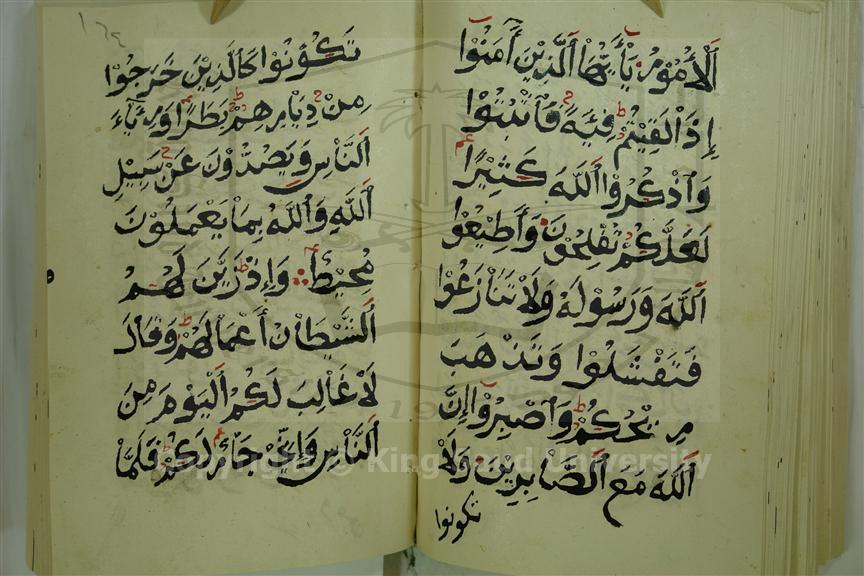 ٱلْأُمُوْرُ يَآ أَيُّهَا ٱلَّذِيْنَ آمَنُوْا
إِذَا لَقِيْتُمْ فِئَةً فَٱثْبُتُوْا
وَٱذْكُرُوْا ٱللَّهَ كَثِيْرًا
لَعَلَّكُمْ تُفْلِحُوْنَ وَأَطِيْعُوْا
ٱللَّهَ وَرَسُوْلَهُ وَلَاْ تَنَاْزَعُوْا
فَتَفْشَلُوْا وَتَذْهَبَ
رِيْحُكُمْ وَٱصْبِرُوْا إِنَّ
ٱللَّهَ مَعَ ٱلصَّاْبِرِيْنَ وَلَاْ
تكونوا
١٦٤
تَكُوْنُوْا كَالَّذِيْنَ خَرَجُوْا
مِنْ دِيَاْرِهِمْ بَطَرًا وَرِئَآءَ
ٱلنَّاْسِ وَيَصُدُّوْنَ عَنْ سَبِيْلِ
ٱللَّهِ وَٱللَّهُ بِمَاْ يَعْمَلُوْنَ
مُحِيْطٌ وَإِذْ زَيَّنَ لَهُمُ
ٱلشَّيْطَاْنُ أَعْمَاْلَهُمْ وَقَاْلَ
لَاْ غَاْلِبَ لَكُمُ ٱلْيَوْمَ مِنَ
ٱلنَّاْسِ وَإِنِّيْ جَاْرٌ لَكُمْ فَلَمَّا
Copyright © King Saud University